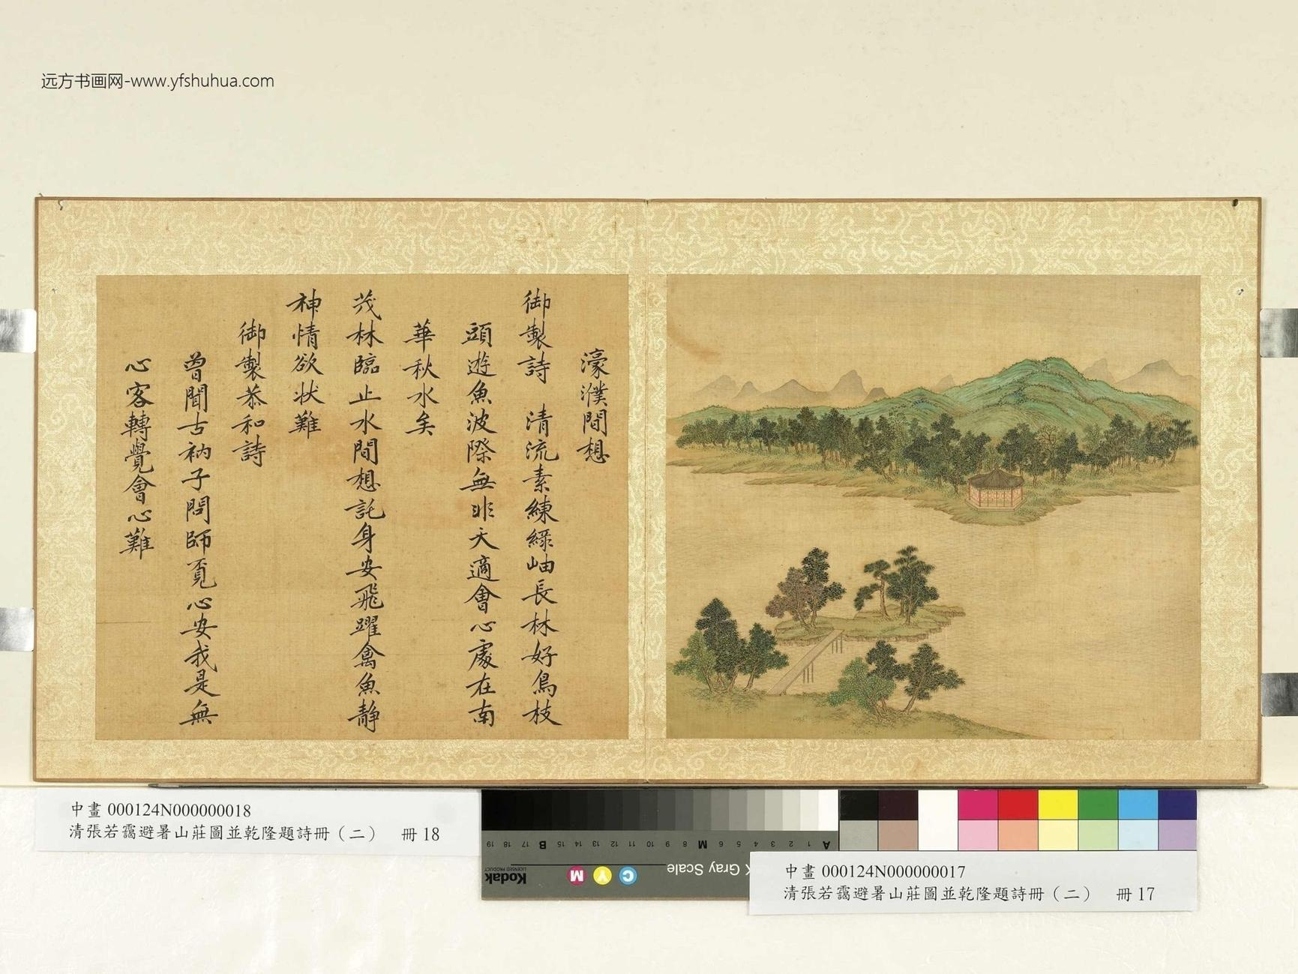 远方书画网-www.yfshuhua.com
濠濮間想
御製詩 清流素練綠岫長林好鳥枝
頭遊魚波際無非天適會心處在南
華秋水矣
茂林臨止水間想託身安飛躍禽魚靜
神情欲状難
御製恭和詩
曾聞古衲子問師覔心安我是無
心客轉覺會心難
中畫 000124N000000018
清張若靄避暑山莊圖並乾隆題詩冊（二） 冊 18
Kodak
LICENSED PRODUCT
Gray Scale
C Y M
A 1 2 3 4 5 6 M 8 9 10 11 12 13 14 15 B 17 18 19
中畫 000124N000000017
清張若靄避暑山莊圖並乾隆題詩冊（二） 冊 17